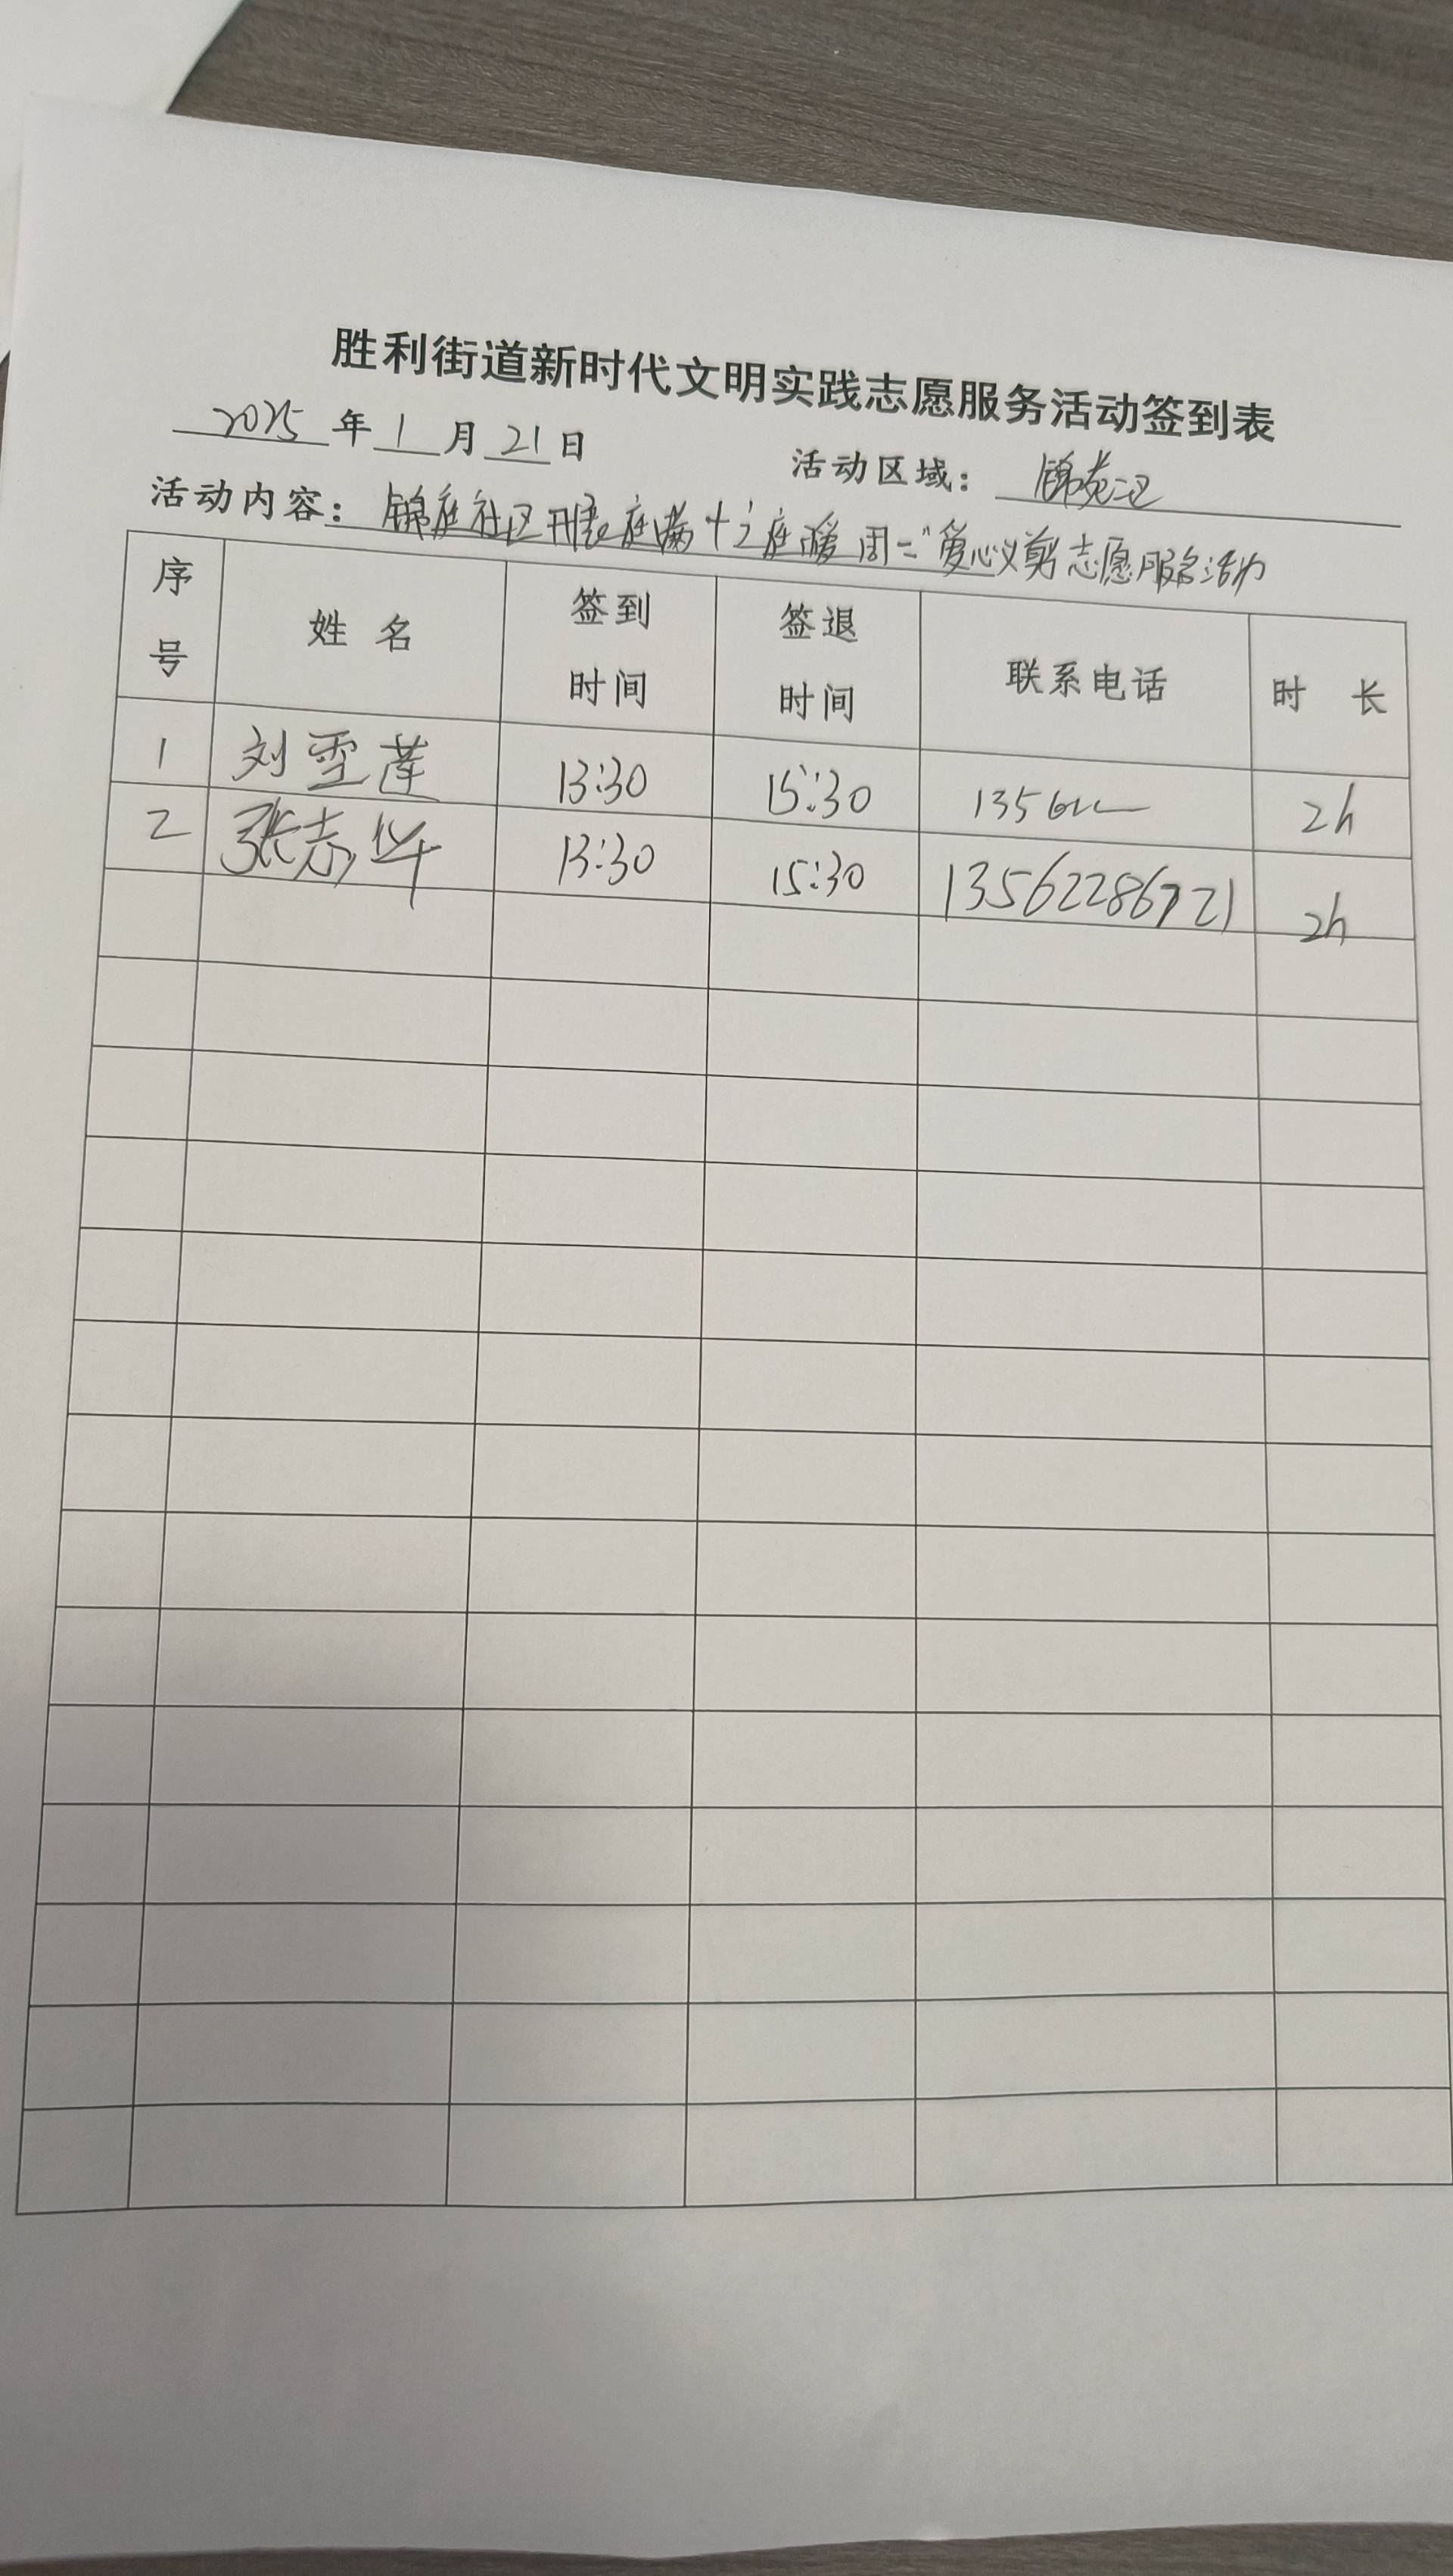 胜利街道新时代文明实践志愿服务活动签到表
2025年1月21日 活动区域：锦苑二区
活动内容：锦庭社区 庭 十 庭暖周二"爱心义剪志愿服务活动
序号 姓名 签到时间 签退时间 联系电话 时长
1 刘雪莲 13:30 15:30 1356 2h
2 张志华 13:30 15:30 13562286721 2h